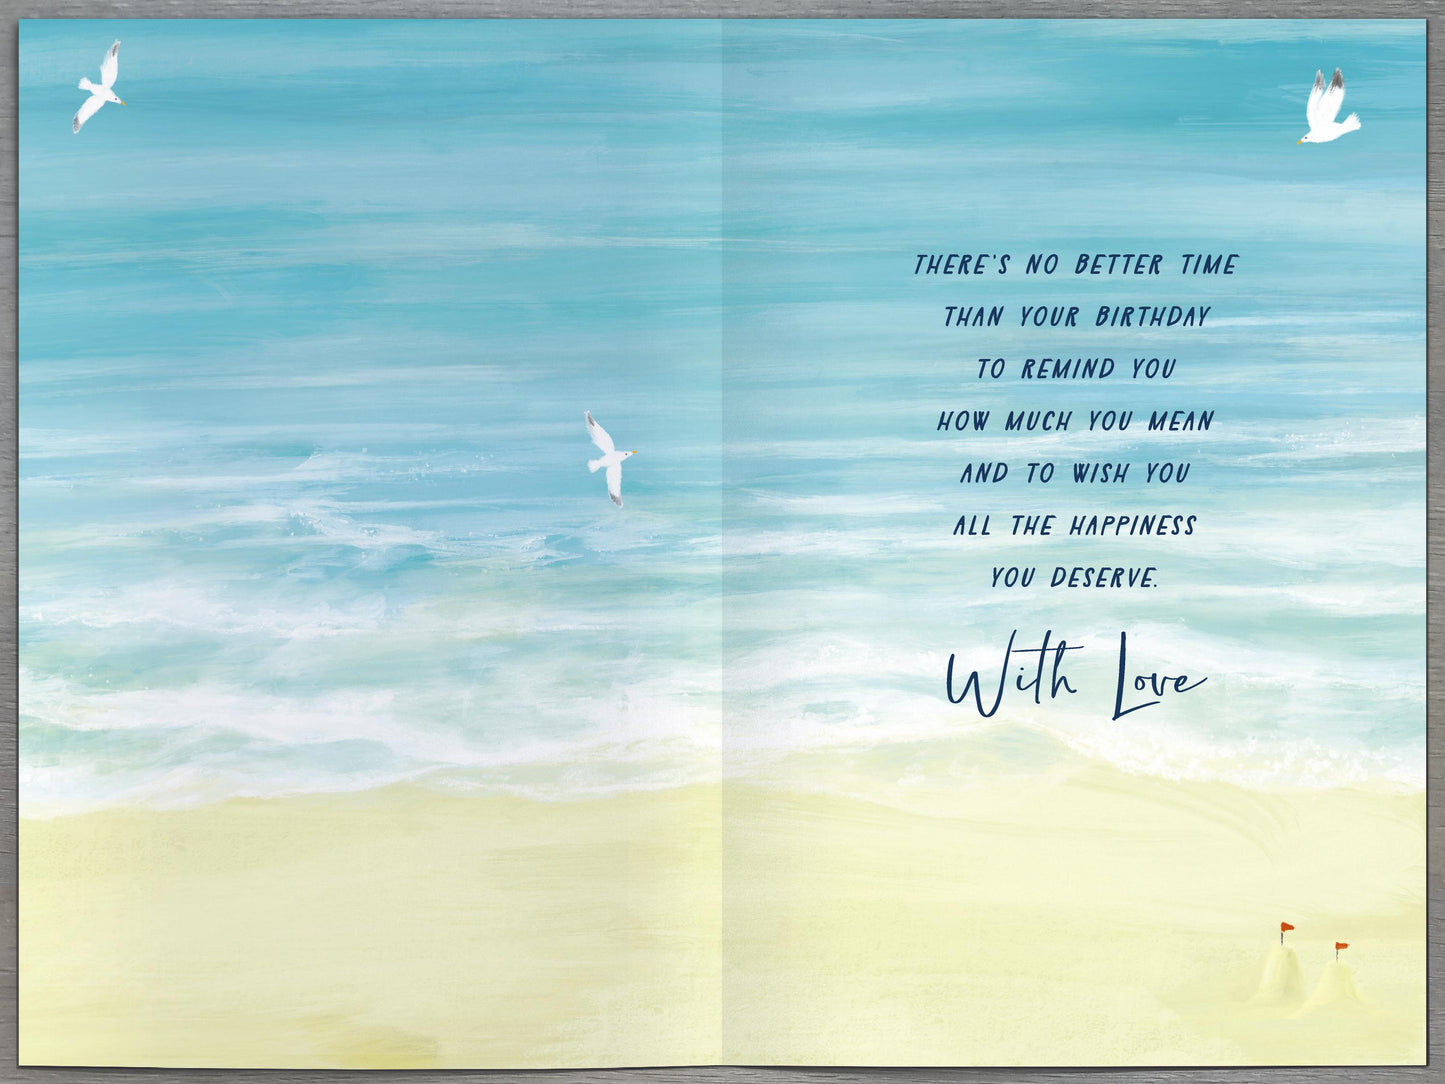 THERE'S NO BETTER TIME
THAN YOUR BIRTHDAY
TO REMIND YOU
HOW MUCH YOU MEAN
AND TO WISH YOU
ALL THE HAPPINESS
YOU DESERVE.
With Love